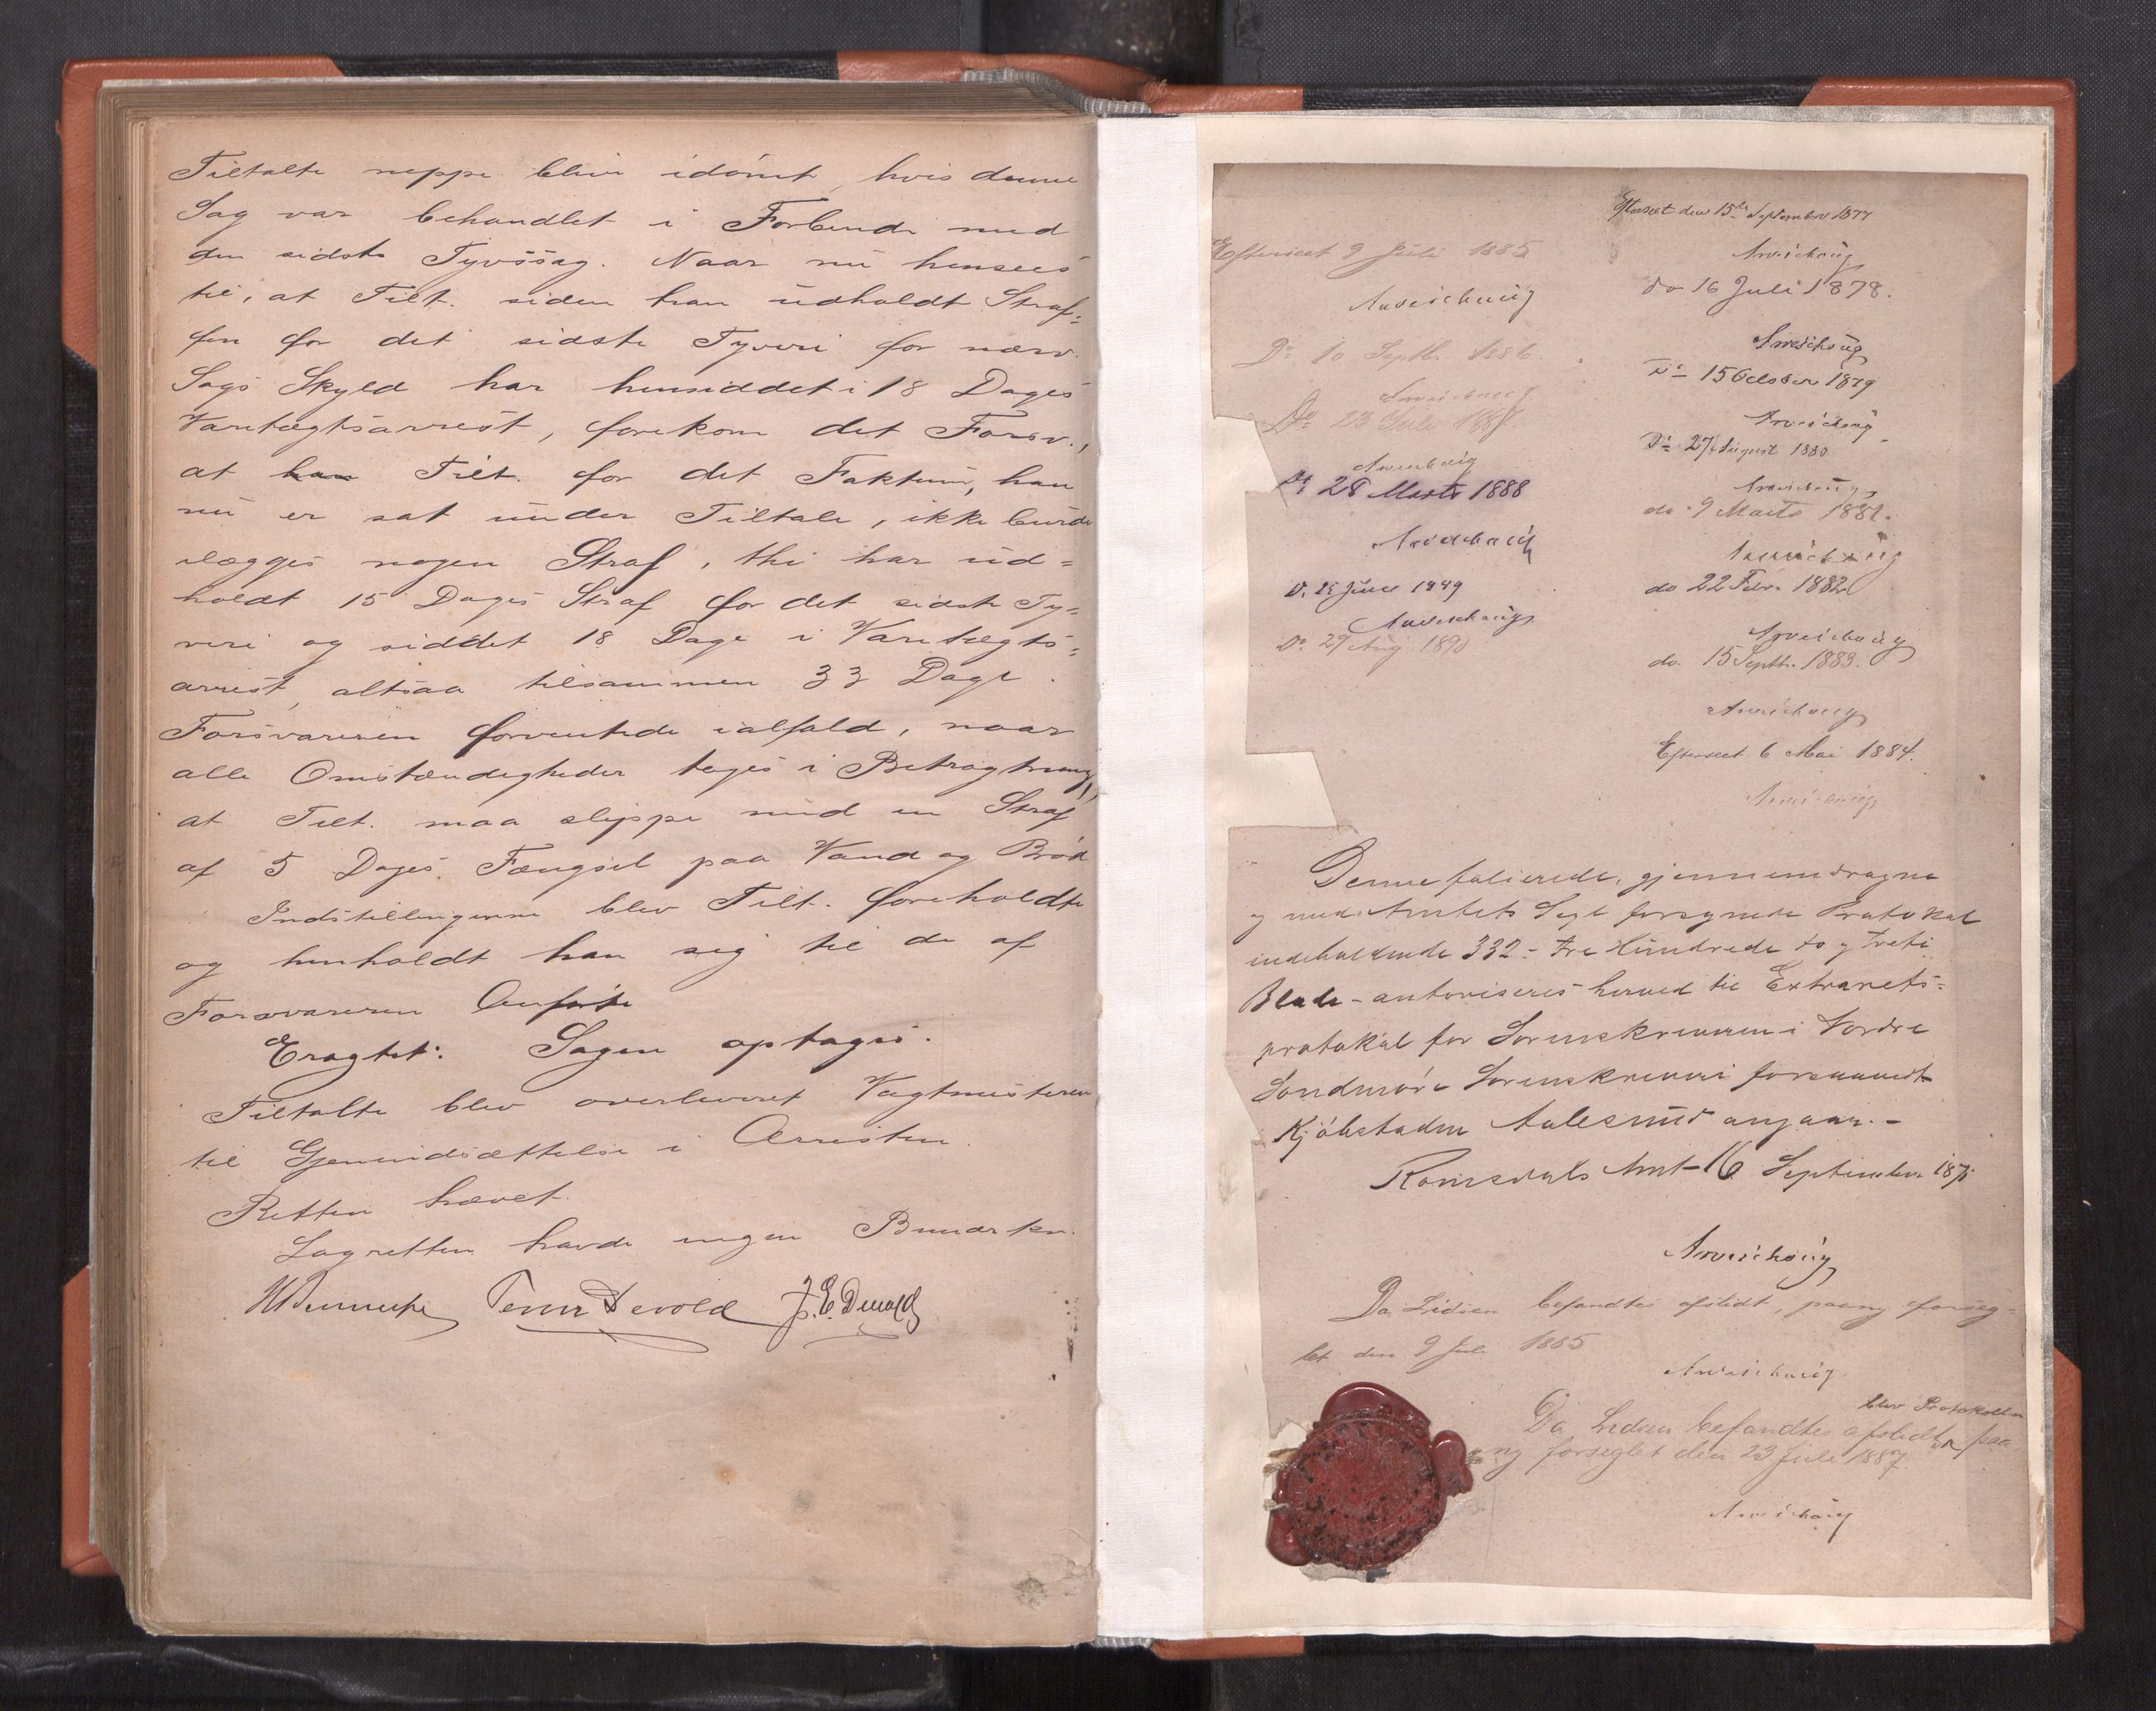 Tiltalte neppe blive idømt, hvis denne
Sag var behandlet i Forbinde med
den sidste Tyvssag. Naar nu hensees
til, at Tilt. siden han udholdt Straf-
fen for det sidste Tyveri for nærv.
Sags Skyld har hensiddet i 18 Dages
Varetægtsarrest, forekom det Forsv.,
at han Tilt. for det Faktum, han
nu er sat under Tiltale, ikke burde
ilægges nogen Straf, thi har ud=
holdt 15 Dages Straf for det sidste Ty=
veri og siddet 18 Dage i Varetægts=
arrest, altsaa tilsammen 33 Dage.
Forsvareren forventede ialfald, naar
alle Omstændigheder tages i Betragtning,
at Tilt. maa slippe med en Straf
af 5 Dages Fængsel paa Vand og Brød
Indstillingerne blev Tilt. foreholdte
og henholdt han sig til de af
Forsvareren Anførte
Eragtet: Sagen optages.
Tiltalte blev overleveret Vagtmesteren
til Gjenindsættelse i Arresten.
Retten hævet.
Lagretten havde ingen Bemærkn.
Devold J. E. Devold
Efterseet den 15de September 1877
Aweichaug
do 16 Juli 1878.
Aweichaug
Do 15 October 1879
Aweichaug
Do 27 August 1880
Aweichaug
do 9 Marts 1881.
Aweichaug
do 22 Febr. 1882
Aweichaug
do. 15 Septbr. 1883.
Aweichaug
Efterseet 6 Mai 1884.
Aweichaug
Efterseet 9 Juli 1885
Aweichaug
Do 10 Septbr. 1886.
Aweichaug
Do 23 Juli 1887.
Aweichaug
Do 28 Marts 1888
Aweichaug
Do 25 Juni 1889
Aweichaug
Do 29 Aug 1890
Denne folierede, gjennemdragne
og med Amtets Segl forsynede Protokol
indeholdende 332 - tre Hundrede to og treti
Blade - autoriseres herved til Extrarets=
protokol for Sorenskriveren i Nordre
Søndmøre Sorenskriveri forsaavidt
Kjøbstaden Aalesund angaar. -
Romsdals Amt 16 September 187
Aweichaug
Da Lidsen befandtes afslidt, paany forseg=
let den 9 Juli 1885
Aweichaug
Da Lidsen befandtes afslidt, blev Protokollen paa
ny forseglet den 23 Juli 1887.
Aweichaug